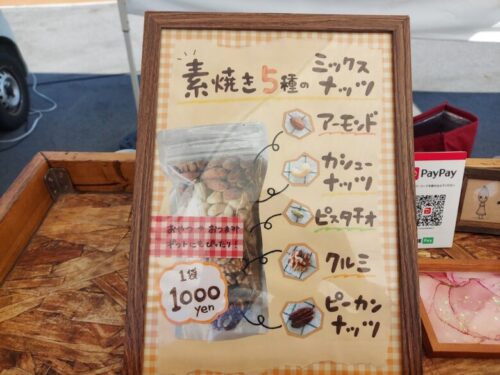 素焼き5種のミックスナッツ
アーモンド
カシューナッツ
ピスタチオ
クルミ
ピーカンナッツ
おやつやおつまみ
ギフトにもぴったり!
1袋
1000
yen
PayPay
Pay